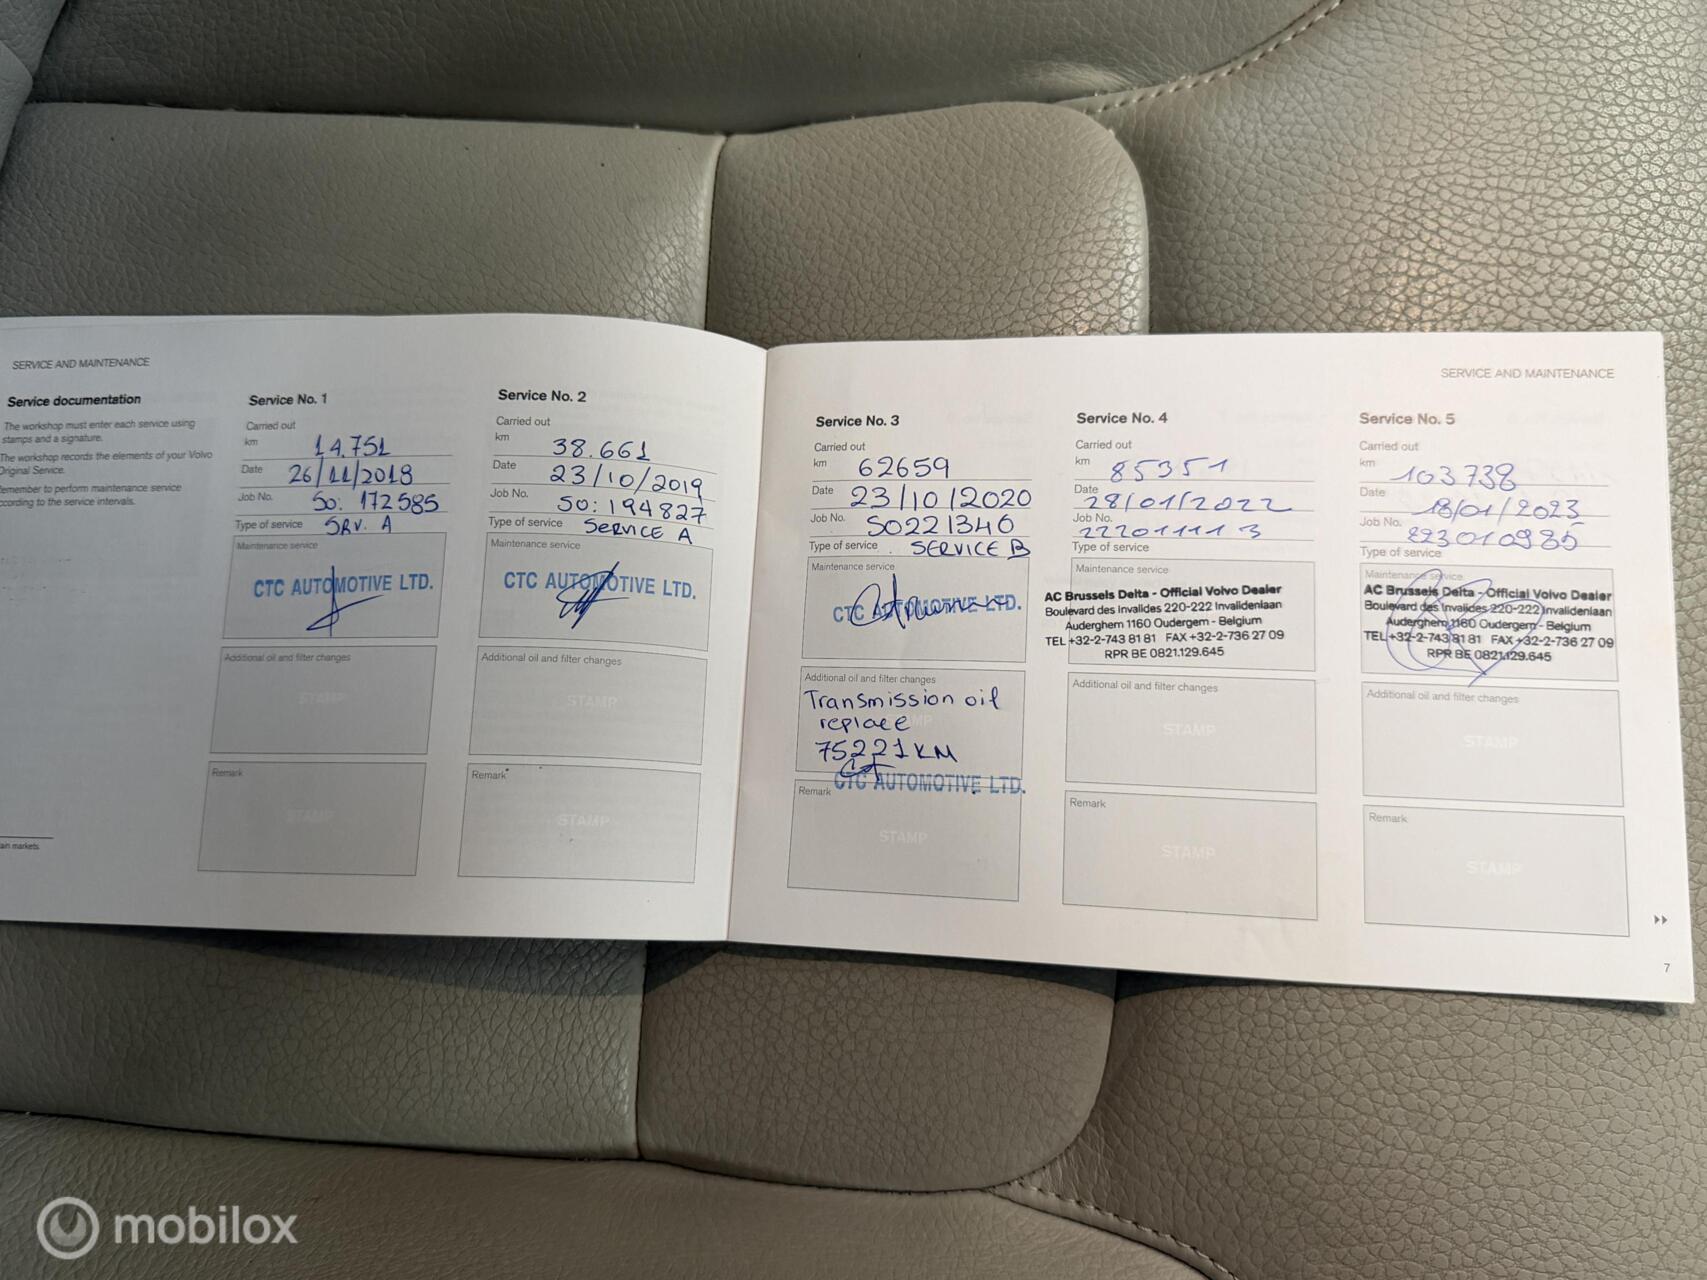 SERVICE AND MAINTENANCE
Service documentation
The workshop must enter each service using
stamps and a signature.
The workshop records the elements of your Volvo
Original Service.
Remember to perform maintenance service
according to the service intervals.
ain markets.
Service No. 1
Carried out
km 14.751
Date 26/11/2018
Job No. SO: 172585
Type of service SRV. A
Maintenance service
CTC AUTOMOTIVE LTD.
Additional oil and filter changes
STAMP
Remark
STAMP
Service No. 2
Carried out
km 38.661
Date 23/10/2019
Job No. SO: 194827
Type of service SERVICE A
Maintenance service
CTC AUTOMOTIVE LTD.
Additional oil and filter changes
STAMP
Remark
STAMP
SERVICE AND MAINTENANCE
Service No. 3
Carried out
km 62659
Date 23/10/2020
Job No. SO221346
Type of service SERVICE B
Maintenance service
CTC AUTOMOTIVE LTD.
Additional oil and filter changes
Transmission oil
replace
75221 KM
CTC AUTOMOTIVE LTD.
Remark
STAMP
Service No. 4
Carried out
km 85351
Date 28/01/2022
Job No. 222011113
Type of service
Maintenance service
AC Brussels Delta - Official Volvo Dealer
Boulevard des Invalides 220-222 Invalidenlaan
Auderghem 1160 Oudergem - Belgium
TEL +32-2-743 81 81 FAX +32-2-736 27 09
RPR BE 0821.129.645
Additional oil and filter changes
STAMP
Remark
STAMP
Service No. 5
Carried out
km 103738
Date 18/01/2023
Job No. 223010985
Type of service
Maintenance service
AC Brussels Delta - Official Volvo Dealer
Boulevard des Invalides 220-222 Invalidenlaan
Auderghem 1160 Oudergem - Belgium
TEL +32-2-743 81 81 FAX +32-2-736 27 09
RPR BE 0821.129.645
Additional oil and filter changes
STAMP
Remark
STAMP
7
mobilox